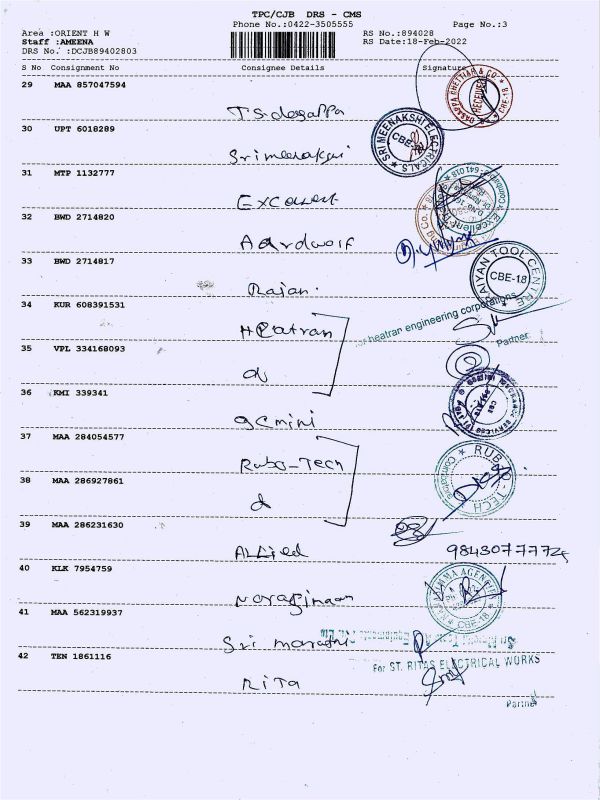 TPC/CJB DRS - CMS
Phone No.:0422-3505555
Page No.:3
Area :ORIENT H W
RS No.:894028
Staff :AMEENA
RS Date:18-Feb-2022
DRS No. :DCJB89402803
S No Consignment No Consignee Details Signature
29 MAA 857047594
T.S. dasappa
DASAPPA CHETTIAR & CO.
RECEIVED
30 UPT 6018289
Srimeenakshi
SRI MEENAKSHI ELECTRICALS
CBE-
31 MTP 1132777
Excellent
32 BWD 2714820
Aardwolf
33 BWD 2714817
Rajan.
TOOL CENTRE
CBE-18
34 KUR 608391531
Heatran
for heatran engineering corporation
Partner
35 VPL 334168093
36 KMI 339341
gemini
37 MAA 284054577
Rubo-Tech
RUBO-TECH
38 MAA 286927861
&
39 MAA 286231630
Allied
40 KLK 7954759
AGENCIES
CBE-18
41 MAA 562319937
Sri maruthi
42 TEN 1861116
For ST. RITAS ELECTRICAL WORKS
Rita
Partner